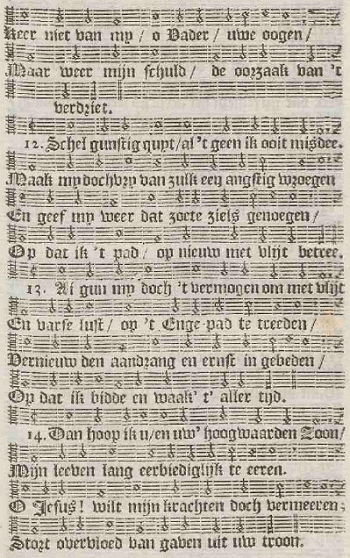 Keer niet van my / o Vader / uwe oogen /
Maar weer mijn schuld / de oorzaak van 't
verdriet.
12. Schel gunstig quyt / al 't geen ik ooit misdee.
Maak my doch vry van zulk een angstig wroegen
En geef my weer dat zoete ziels genoegen /
Op dat ik 't pad / op nieuw met vlijt betree.
13. Ai gun my doch 't vermogen om met vlijt
En varse lust / op 't Enge pad te treeden /
Vernieuw den aandrang en ernst in gebeden /
Op dat ik bidde en waak' t' aller tyd.
14. Dan hoop ik u / en uw' hoogwaarden Zoon /
Mijn leeven lang eerbiediglijk te eeren.
O Jesus! wilt mijn krachten doch vermeeren;
Stort overvloed van gaven uit uw troon.